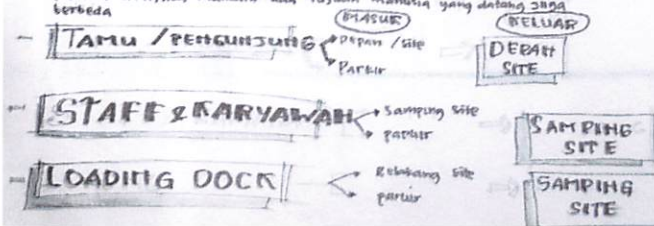 yang datang juga
berbeda
MASUK
KELUAR
- TAMU / PENGUNJUNG
Depan / site
Parkir
DEPAN
SITE
- STAFF & KARYAWAN
Samping site
parkir
SAMPING
SITE
- LOADING DOCK
Belakang site
parkir
SAMPING
SITE